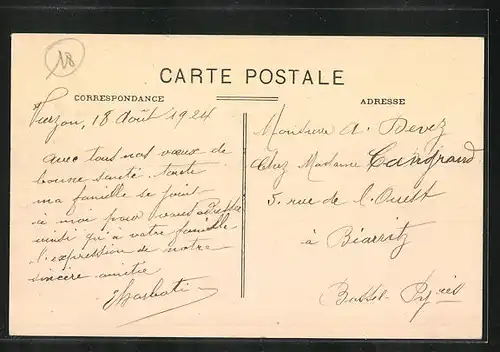 18
CARTE POSTALE
CORRESPONDANCE
ADRESSE
Vierzon, 18 Août 1924
avec tous nos vœux de
bonne santé toute
ma famille se joint
à moi pour vous adresser
ainsi qu'à votre famille
l'expression de notre
sincère amitié
Monsieur A. Devez
Chez Madame Cangrand
5 rue de l'Ouest
à Biarritz
Basses-Pyées